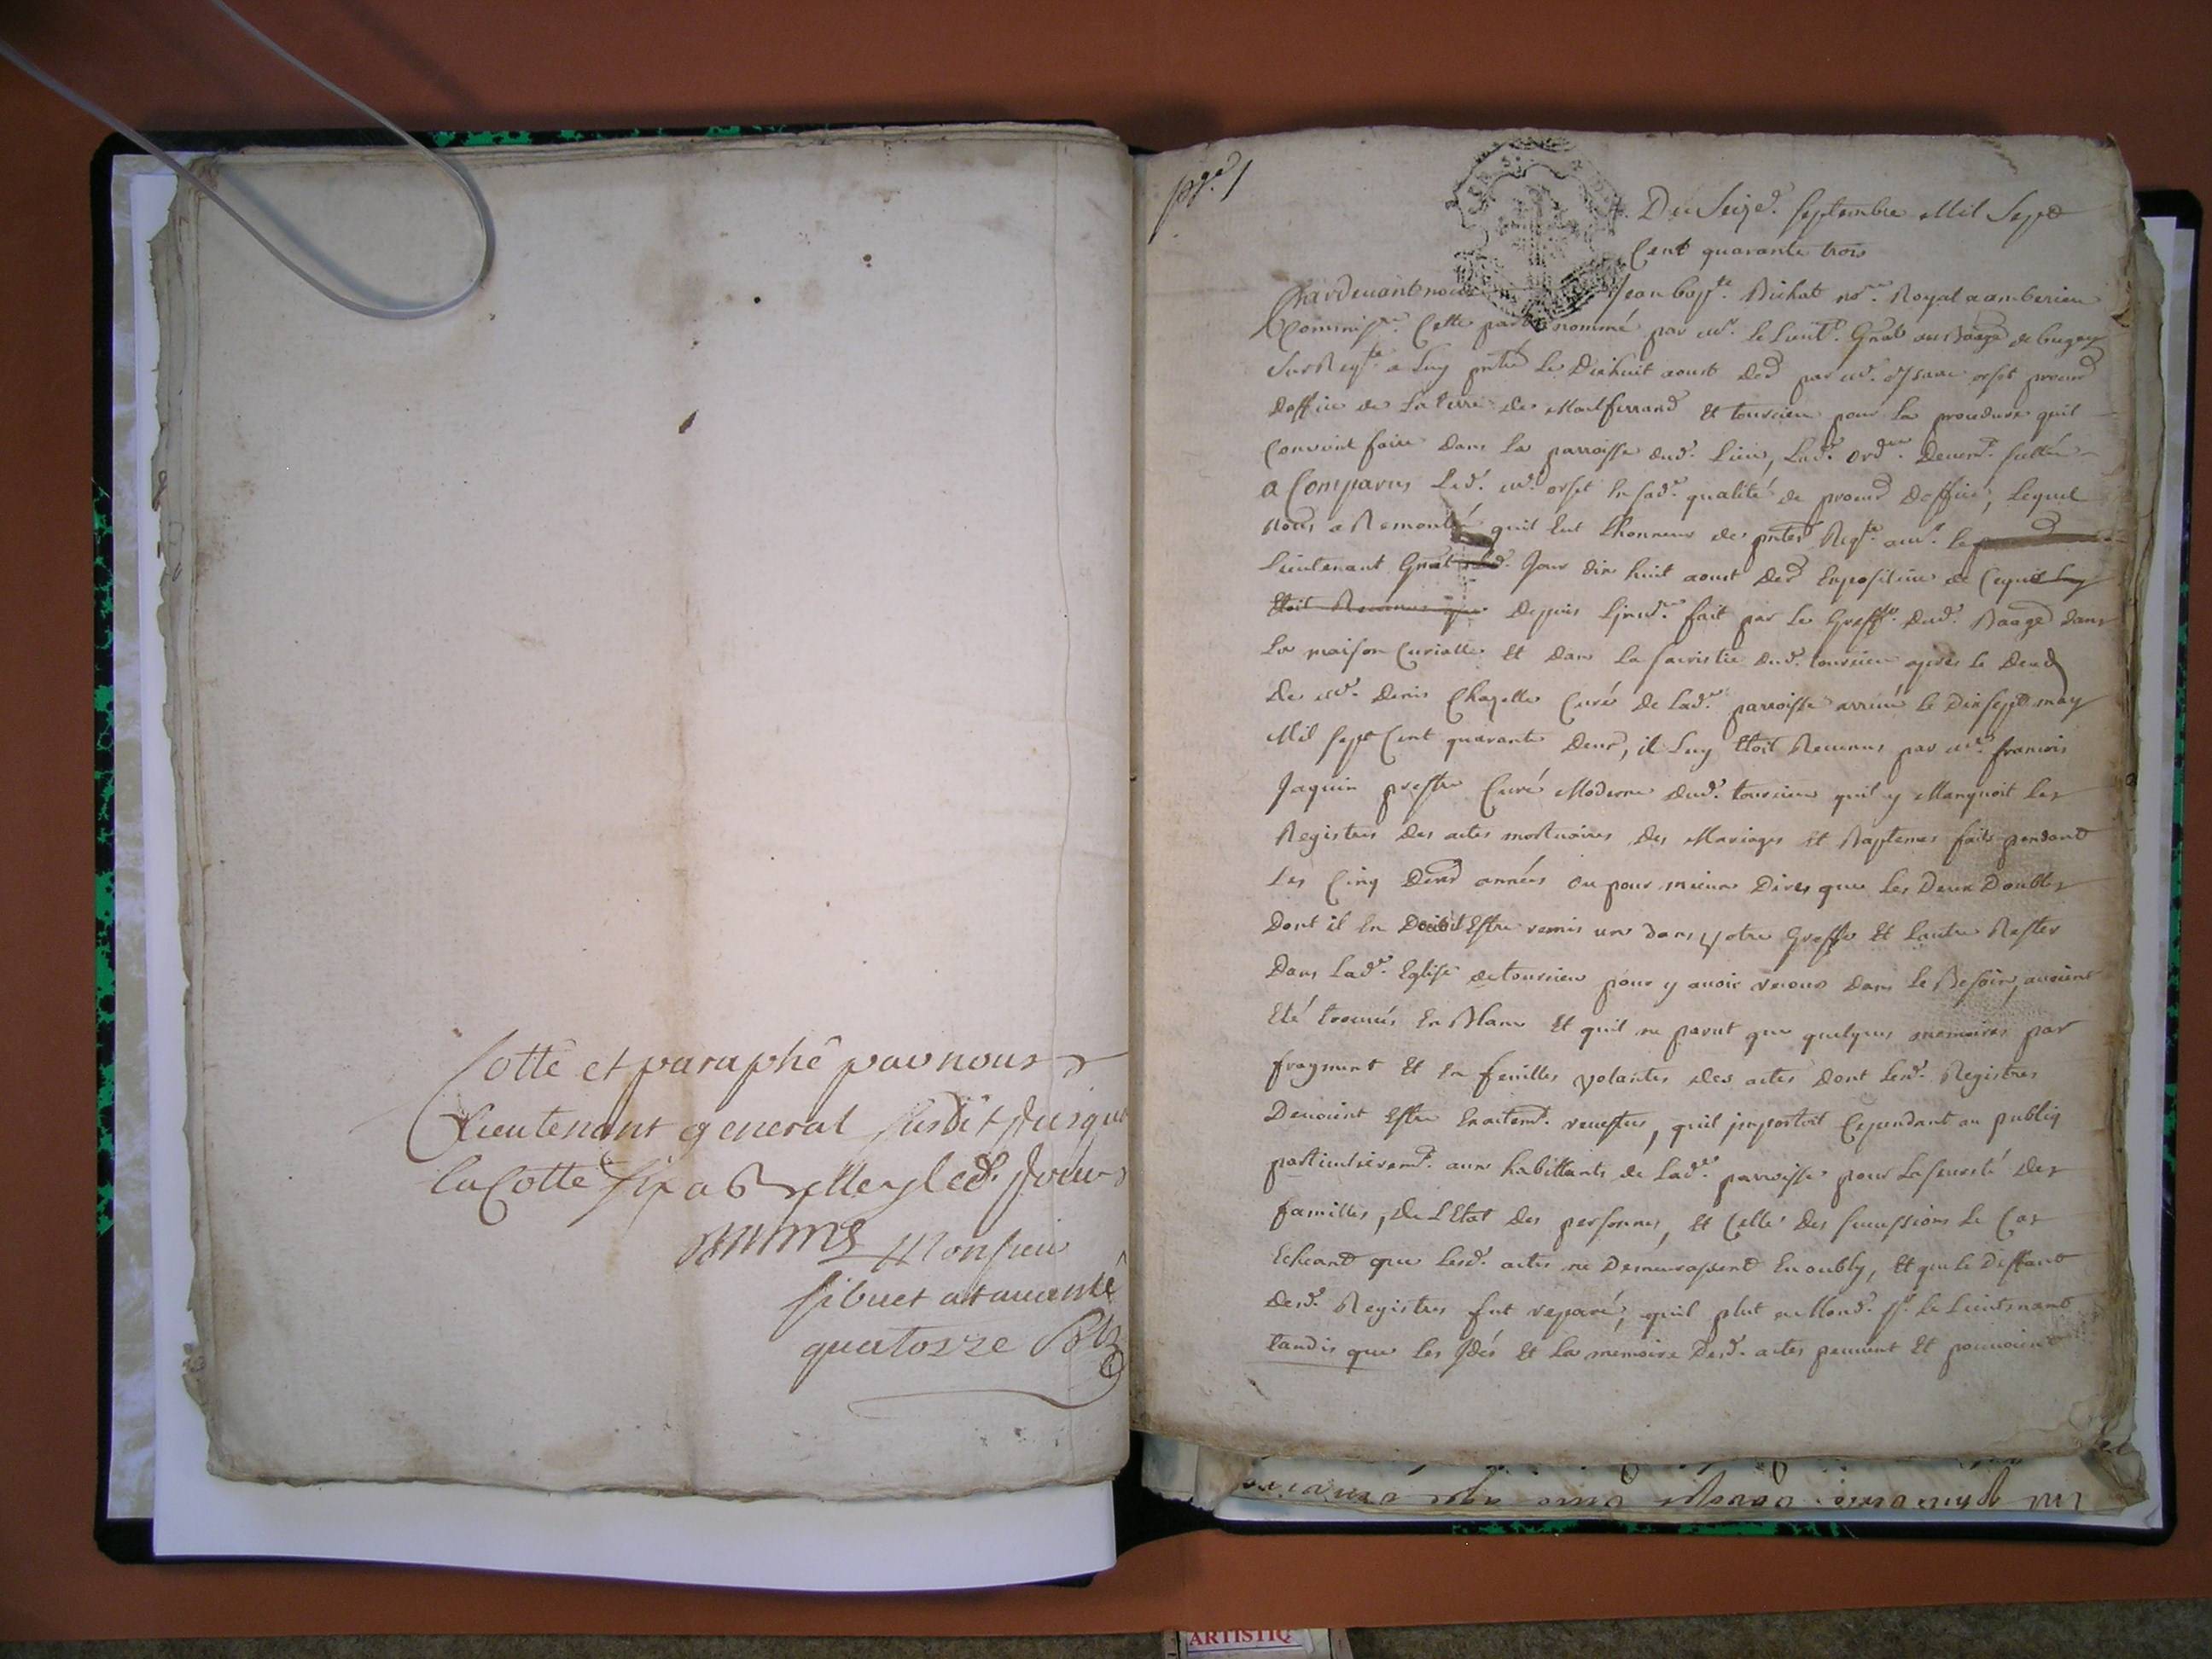 Cotté et paraphé par nous
Lieutenant general susdit jusqu
la Cotte six a Belley led. jour
Monsieur
sibuet
quatorze
pge. 1
Du Seize. septembre Mil Sept
Cent quarante trois
Pardevant nous Jean bapte. Bichat nore. Royal a amberieu
Commisre. Cette partie nommé par mr. le Lieut. Gnal au Baage de bugey
Sur Reqte. a Luy pntée Le Dixhuit aoust der par me. orset procur
Doffice de La terre de Montferrand Et torcieu pour La procedure quil
Convient faire Dans La parroisse dud. Lieu, Lad. ord.
a Comparus Led. me. orset En sad. qualité de procur Doffice, Lequel
nous a Remontré quil Eut Lhonneur de pnter Reqte. aud. Sr
Lieutenant Gnal Jour dix huit aoust der Expositive de Ce
Depuis fait par Le Greffr. dud. Baage dans
La maison Curialle Et dans La sacristie dud. torcieu apres Le Deced
de me. denis Chapelle Curé de Lad. parroisse arrivé Le Dixsept may
Mil sept Cent quarante Deux, il Luy Etoit Revenus par me. francois
Jaquin prestre Curé Moderne dud. torcieu quil y Manquoit Les
Registres des actes mortuaires des Mariages Et Baptemes faits pendant
Les Cinq Der années ou pour mieux Dire que Les Deux Doubles
Dont il En Devoit Estre remis un dans votre Greffe Et Lautre Rester
Dans Lad. Eglise de torcieu pour y avoir recours dans Le Besoin, avoient
Eté trouvés En Blanc Et quil ne parut que quelques memoires par
fragment Et En feuilles volantes des actes dont Lesd. Registres
Devoient Estre Exactemt. revestus, quil importoit Cependant au publiq
particulieremt. aux habittants de Lad. parroisse pour La seureté Des
familles, de LEtat des personnes, Et Celle des successions Le Cas
Echeant que Lesd. actes ne Demeurassent En oubly, Et que Le Deffaut
desd. Registres fut reparé, quil plut a Mond. Sr. Le Lieutenant
tandis que Les Idés Et La memoire Desd. actes peuvent Et pouvoient
ARTISTIQ